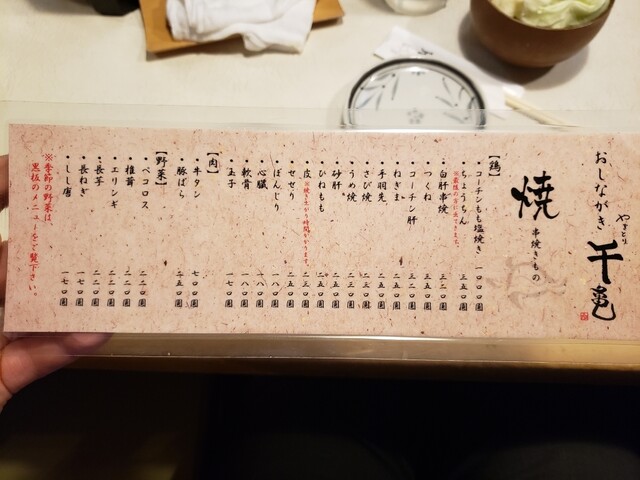 おしながき
やきとり
千亀
焼
串焼きもの
【鶏】
・コーチンもも塩焼き
・ちょうちん 三五〇円
・白肝串焼 三二〇円
・つくね 三五〇円
・コーチン肝 三二〇円
・ねぎま 二五〇円
・手羽先 二五〇円
・さび焼 二三〇円
・うめ焼 二三〇円
・砂肝 二五〇円
・ひねもも 二五〇円
・皮 ※焼き上がり時間かかります。 二三〇円
・せせり 二五〇円
・ぼんじり 一八〇円
・心臓 一八〇円
・軟骨 一八〇円
・玉子 一七〇円
【肉】
・牛タン 七〇〇円
・豚ばら 二五〇円
【野菜】
・ペコロス 二二〇円
・椎茸 二二〇円
・エリンギ 二二〇円
・長芋 二二〇円
・長ねぎ 一七〇円
・しし唐 一七〇円
※季節の野菜は
黒板のメニューをご覧下さい。